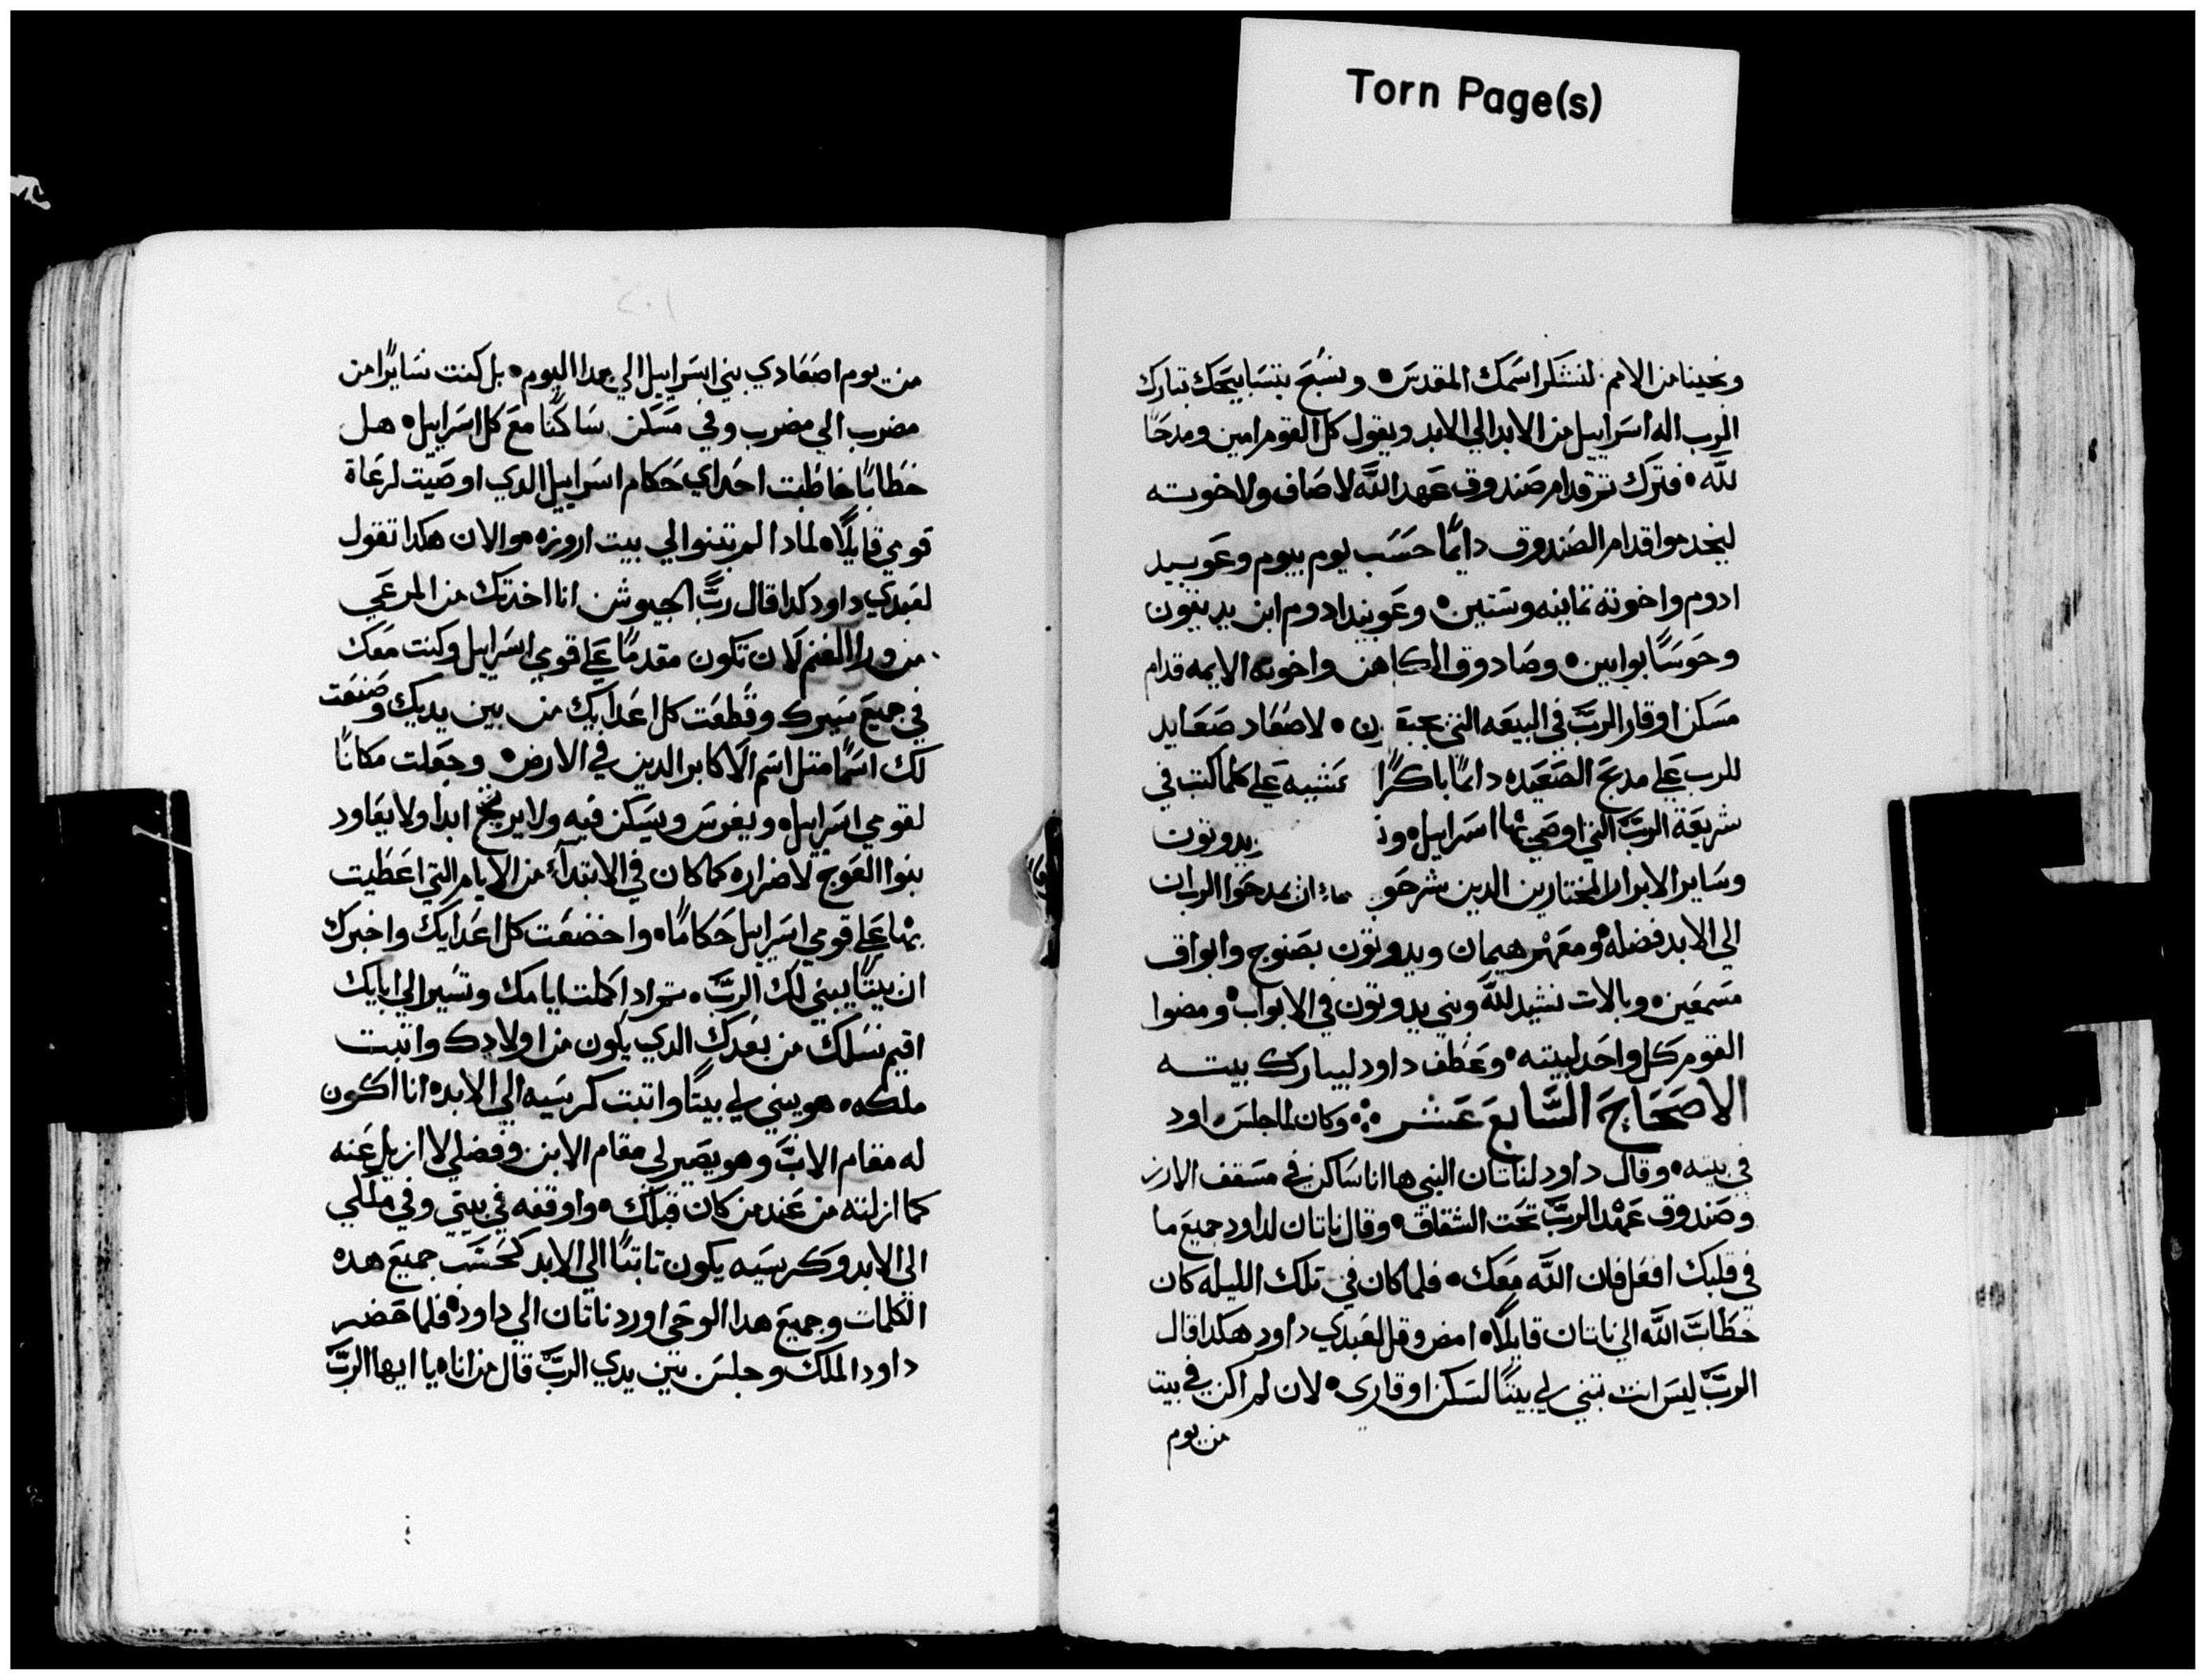 Torn Page(s)
ونجينا من الامم لنشكر اسمك المقدس • ونسبح بتسابيحك تبارك
الرب اله اسراييل من الابد الي الابد ويقول كل القوم امين ومدحًا
لله • فترك تم قدام صندوق عهد الله لاصاف ولاخوته
ليخدموا قدام الصندوق دايمًا حسب يوم بيوم وعوبيد
ادوم واخوته تمانيه وستين • وعوبيد ادوم ابن يديتون
وحوسا بوابين • وصادوق الكاهن واخوته الايمه قدام
مسكن اوقار الرب في البيعه التي بجبعون • لاصعاد صعايد
للرب علي مدبح الصعيده دايمًا باكرًا عشيه علي كلما كتب في
شريعة الرب التي اوصي بها اسراييل • و يدوتون
وساير الابرار المختارين الدين شرحو ان يمدحوا الرب ان
الي الابد فضله • ومعهم هيمان ويدوتون بصنوج وابواق
مسمعين • وبالات نشيد لله وبني يدوتون في الابواب • ومضوا
القوم كل واحد لبيته • وعطف داود ليبارك بيته
الاصحاح السابع عشر ∴ وكان لما جلس داود
في بيته • وقال داود لناتان النبي ها انا ساكن في مسقف الارز
وصندوق عهد الرب تحت الشقاق • وقال ناتان لداود جميع ما
في قلبك افعل فان الله معك • فلما كان في تلك الليله كان
خطاب الله الي ناتان قايلًا • امض وقل لعبدي داود هكدا قال
الرب ليس انت تبني لي بيتًا لسكن اوقاري • لان لم اكن في بيت
من يوم
من يوم اصعادي بني اسراييل الي هدا اليوم • بل كنت سايرًا من
مضرب الي مضرب وفي مسكن ساكنًا مع كل اسراييل • هل
خطابًا خاطبت احد اي حكام اسراييل الدي اوصيت لرعاة
قومي قايلًا • لمادا لم تبنوا لي بيت اروزه • والان هكدا تقول
لعبدي داود كدا قال رب الجيوش انا اخدتك من المرعي
من ورا الغنم لان تكون مقدمًا علي قومي اسراييل وكنت معك
في جميع سيرك وقطعت كل اعدايك من بين يديك وصنعت
لك اسمًا متل اسم الاكابر الدين في الارض • وجعلت مكانًا
لقومي اسراييل • ويغرس ويسكن فيه ولا يرتج ابدا ولا يعاود
بنوا العوج لاضراره كما كان في الابتدآء من الايام التي اعطيت
بها علي قومي اسراييل حكامًا • واخضعت كل اعدايك واخبرك
ان بيتًا يبني لك الرب • تم ادا كملت ايامك وتسير الي ابايك
اقيم نسلك من بعدك الدي يكون من اولادك واتبت
ملكه • هو يبني لي بيتًا واتبت كرسيه الي الابد • انا اكون
له مقام الاب وهو يصير لي مقام الابن وفضلي لا ازيل عنه
كما ازلته من عند من كان قبلك • واوقفه في بيتي وفي ملكي
الي الابد وكرسيه يكون تابتًا الي الابد كحسب جميع هده
الكلمات وجميع هدا الوحي اورد ناتان الي داود • فلما حضر
داود الملك وجلس بين يدي الرب قال من انا • يا ايها الرب